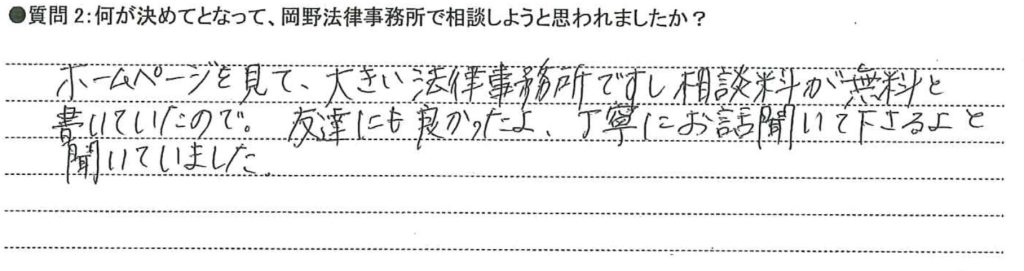 ●質問2:何が決めてとなって、岡野法律事務所で相談しようと思われましたか？
ホームページを見て、大きい法律事務所ですし相談料が無料と
書いていたので。 友達にも良かったよ、丁寧にお話聞いて下さるよと
聞いていました。